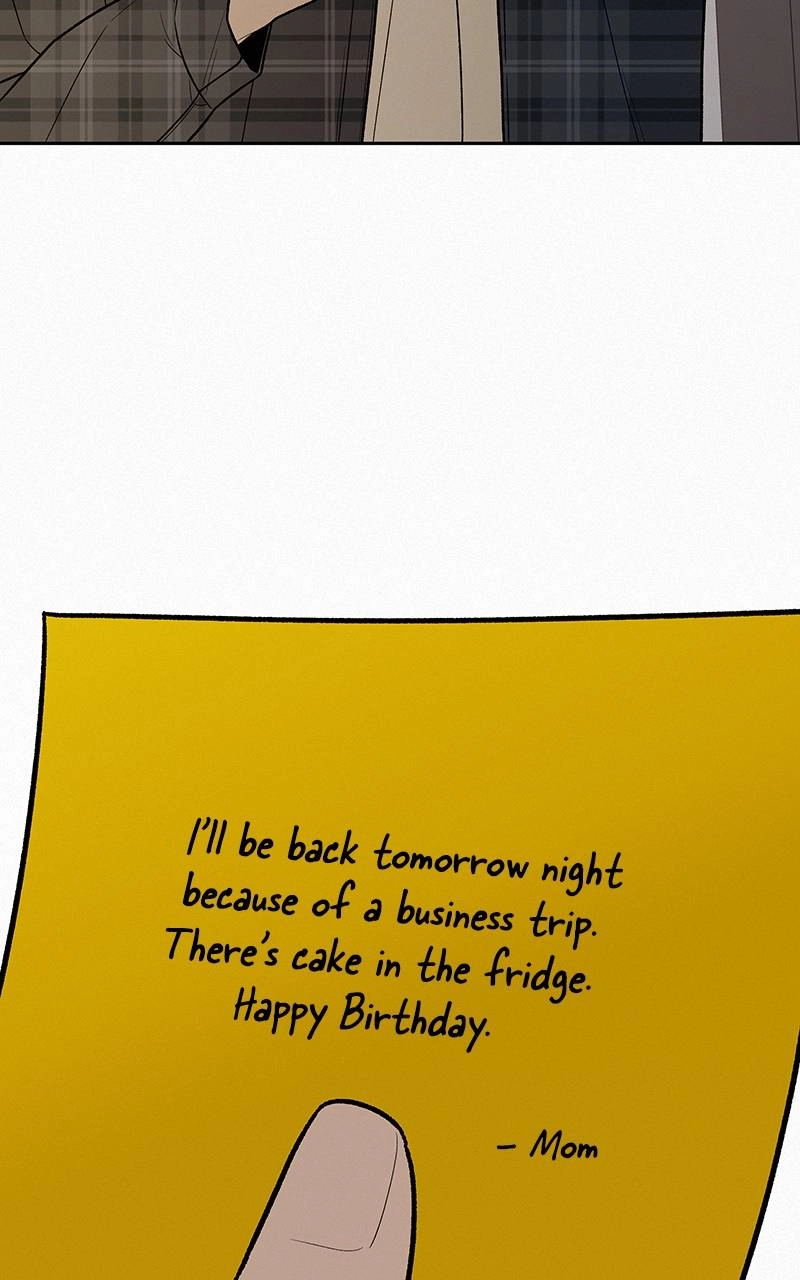 I'll be back tomorrow night
because of a business trip.
There's cake in the fridge.
Happy Birthday.
- Mom